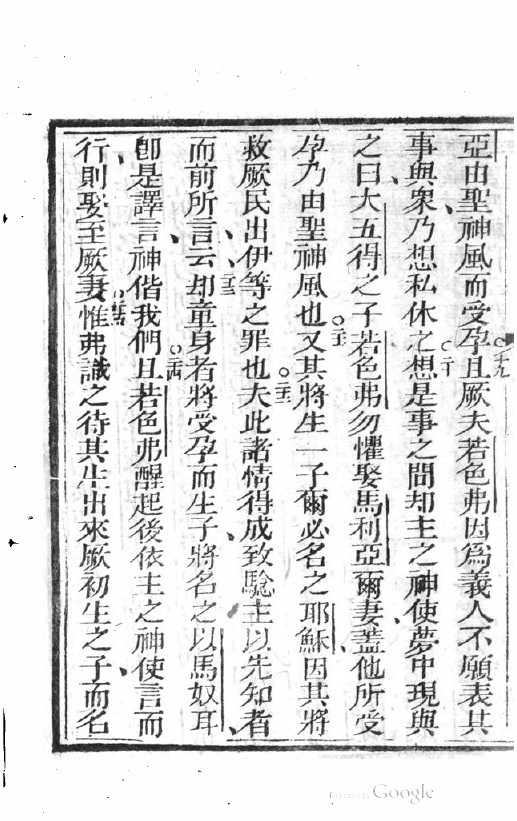 亞由聖神風而受孕○十九且厥夫若色弗因為義人不願表其
事與眾、乃想私休之○二十想是事之間却主之神使夢中現與
之曰大五得之子若色弗勿懼娶馬利亞爾妻、蓋他所受
孕乃由聖神風也○二一又其將生一子爾必名之耶穌因其將
救厥民出伊等之罪也○二二夫此諸情得成、致騐主以先知者、
而前所言、云○二三却童身者將受孕而生子將名之以馬奴耳
卽是譯言神偕我們○二四且若色弗醒起後依主之神使言而
行、則娶至厥妻○二五惟弗識之待其生出來厥初生之子、而名
Google